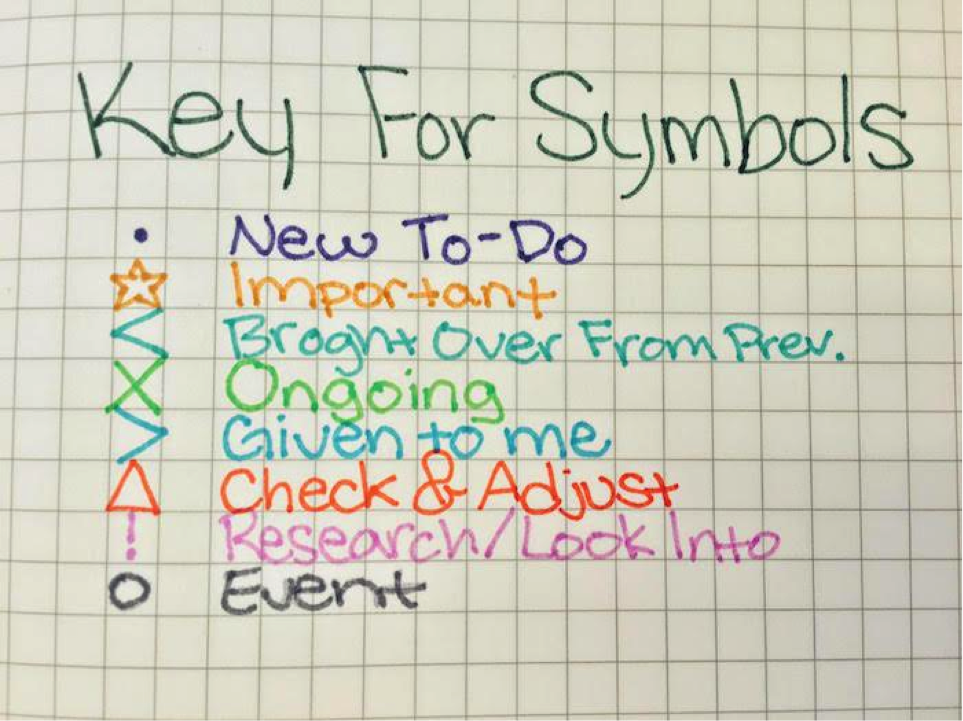 Key For Symbols
• New To-Do
☆ Important
< Broght Over From Prev.
X Ongoing
> Given to me
△ Check & Adjust
! Research/Look Into
O Event